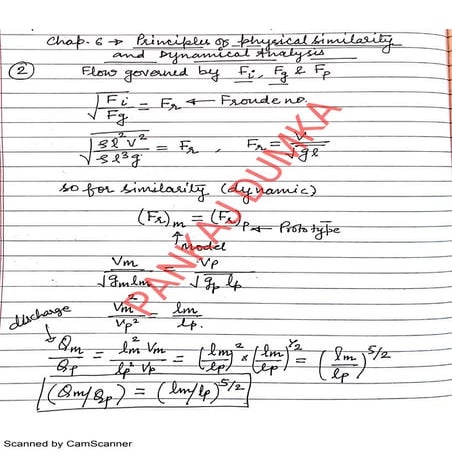 Chap. 6 → Principles of physical similarity
and Dynamical Analysis
② Flow governed by Fi, Fg & Fp
√(Fi/Fg) = Fr ← Froude no.
√(ρl²v²/ρl³g) = Fr , Fr = V/√gl
so for similarity (dynamic)
(Fr)m = (Fr)p ← Prototype
↑ model
Vm/√gm lm = Vp/√gp lp
Vm²/Vp² = lm/lp.
discharge
Qm/Qp = lm² Vm/lp² Vp = (lm/lp)² × (lm/lp)^1/2 = (lm/lp)^5/2
(Qm/Qp) = (lm/lp)^5/2
PANKAJ DUMKA
Scanned by CamScanner